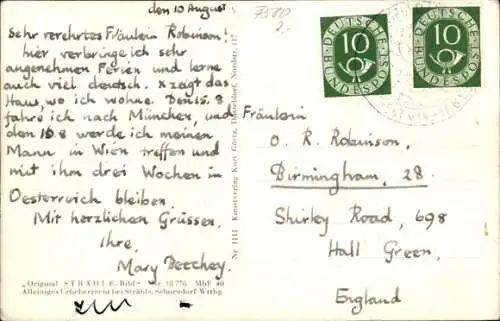 den 10 August.
Sehr verehrtes Fräulein Robinson!
hier verbringe ich sehr
angenehmen Ferien und lerne
auch viel deutsch. x zeigt das
Haus, wo ich wohne. Den 15.8
fahre ich nach München, und
den 16.8 werde ich meinen
Mann in Wien treffen und
mit ihm drei Wochen in
Oesterreich bleiben.
Mit herzlichen Grüssen,
Ihre,
Mary Beechey.
„Original STRXHLE-Bild" Nr. 18776 MbF 40
Alleiniges Urheberrecht bei Strähle, Schorndorf Wttbg.
Nr 1111 Kunstverlag Kurt Görtz, Düsseldorf, Nordstr. 117
DEUTSCHE BUNDESPOST
10
DEUTSCHE BUNDESPOST
10
Fräulein
O. R. Robinson,
Birmingham, 28.
Shirley Road, 698
Hall Green,
England